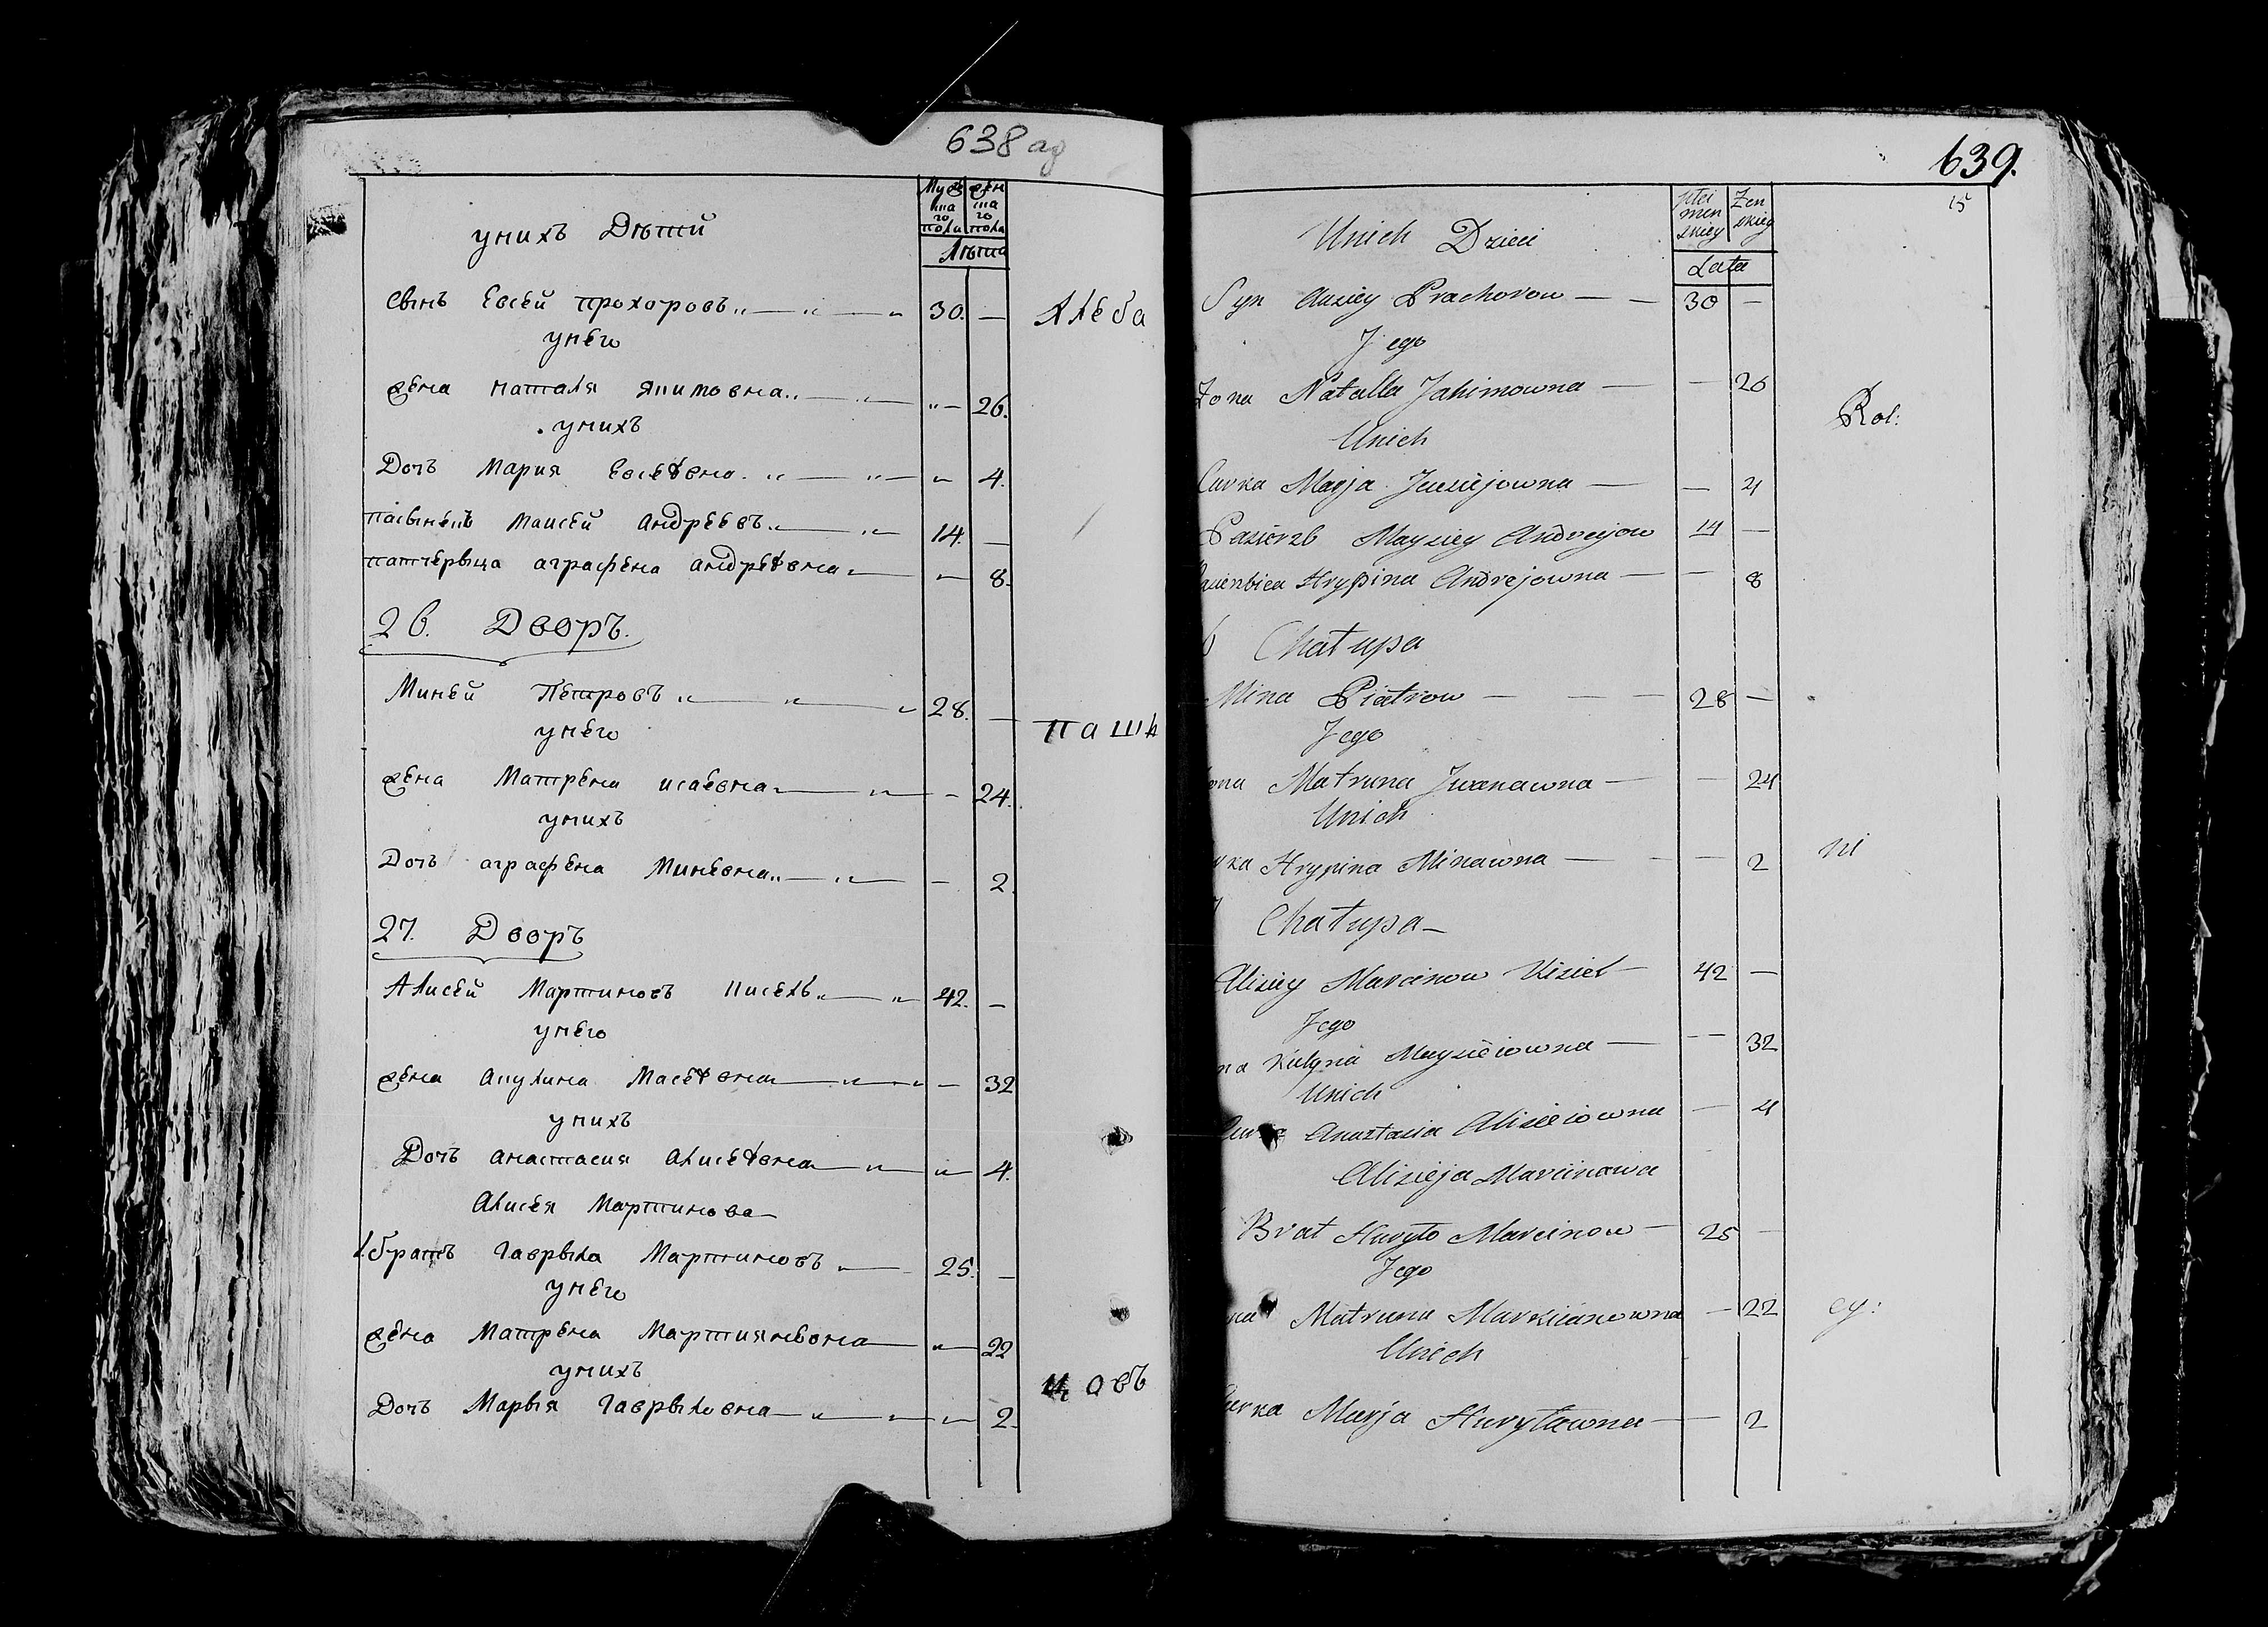 638 об
Мужскаго пола
женскаго пола
Лѣта
унихъ Дѣтй
Свынъ Евсей прохоровъ 30. —
Хлеба
унего
жена наталя якимовна — 26.
унихъ
Дочъ Мария Евсеевна — 4.
пасынецъ маисей андреевъ 14. —
патчервыца аграфена андреевна — 8.
26. Дворъ.
Миней Петровъ 28. —
пашъ
унего
жена Матрена исаевна — 24.
унихъ
Дочъ аграфена Миневна — 2.
27. Дворъ
Алисей Мартиновъ Кисель 42. —
унего
жена Акулина Масеевна — 32
унихъ
Дочъ анастасия алисеевна — 4.
Алисея Мартинова
1. братъ гаврыла Мартиновъ 25. —
унего
жена Матрена Мартияновна — 22
унихъ
цовъ
Дочъ Марыя гаврыловна — 2.
639.
15
Zen skiey
Lata
Unich Dzieci
Syn Auziey Prachorow — — 30 —
Jego
Zona Natalla Jakimowna — — 26
Rol:
Unich
Curka Marja Juziejowna — — 4
Pasierzb Mayziey Andreyow 14 —
Hrypina Andrejowna — — 8
6 Chatupa
Mina Piatrow — — — 28 —
Jego
ona Matruna Jwanawna — — 24
Unich
rka Hrypina Minawna — — — 2
ni
7 Chatupa —
Aliziey Marcinow Kiziel — 42 —
Jego
na Kulyna Mayzieiowna — — 32
Unich
Curka Anastazia Alizieiowna — 4
Alizieja Marcinawa
Brat Hurylo Marcinow — 25 —
Jego
na Matruna Markiianowna — 22
cy:
Unich
Curka Marja Hurylawna — — 2